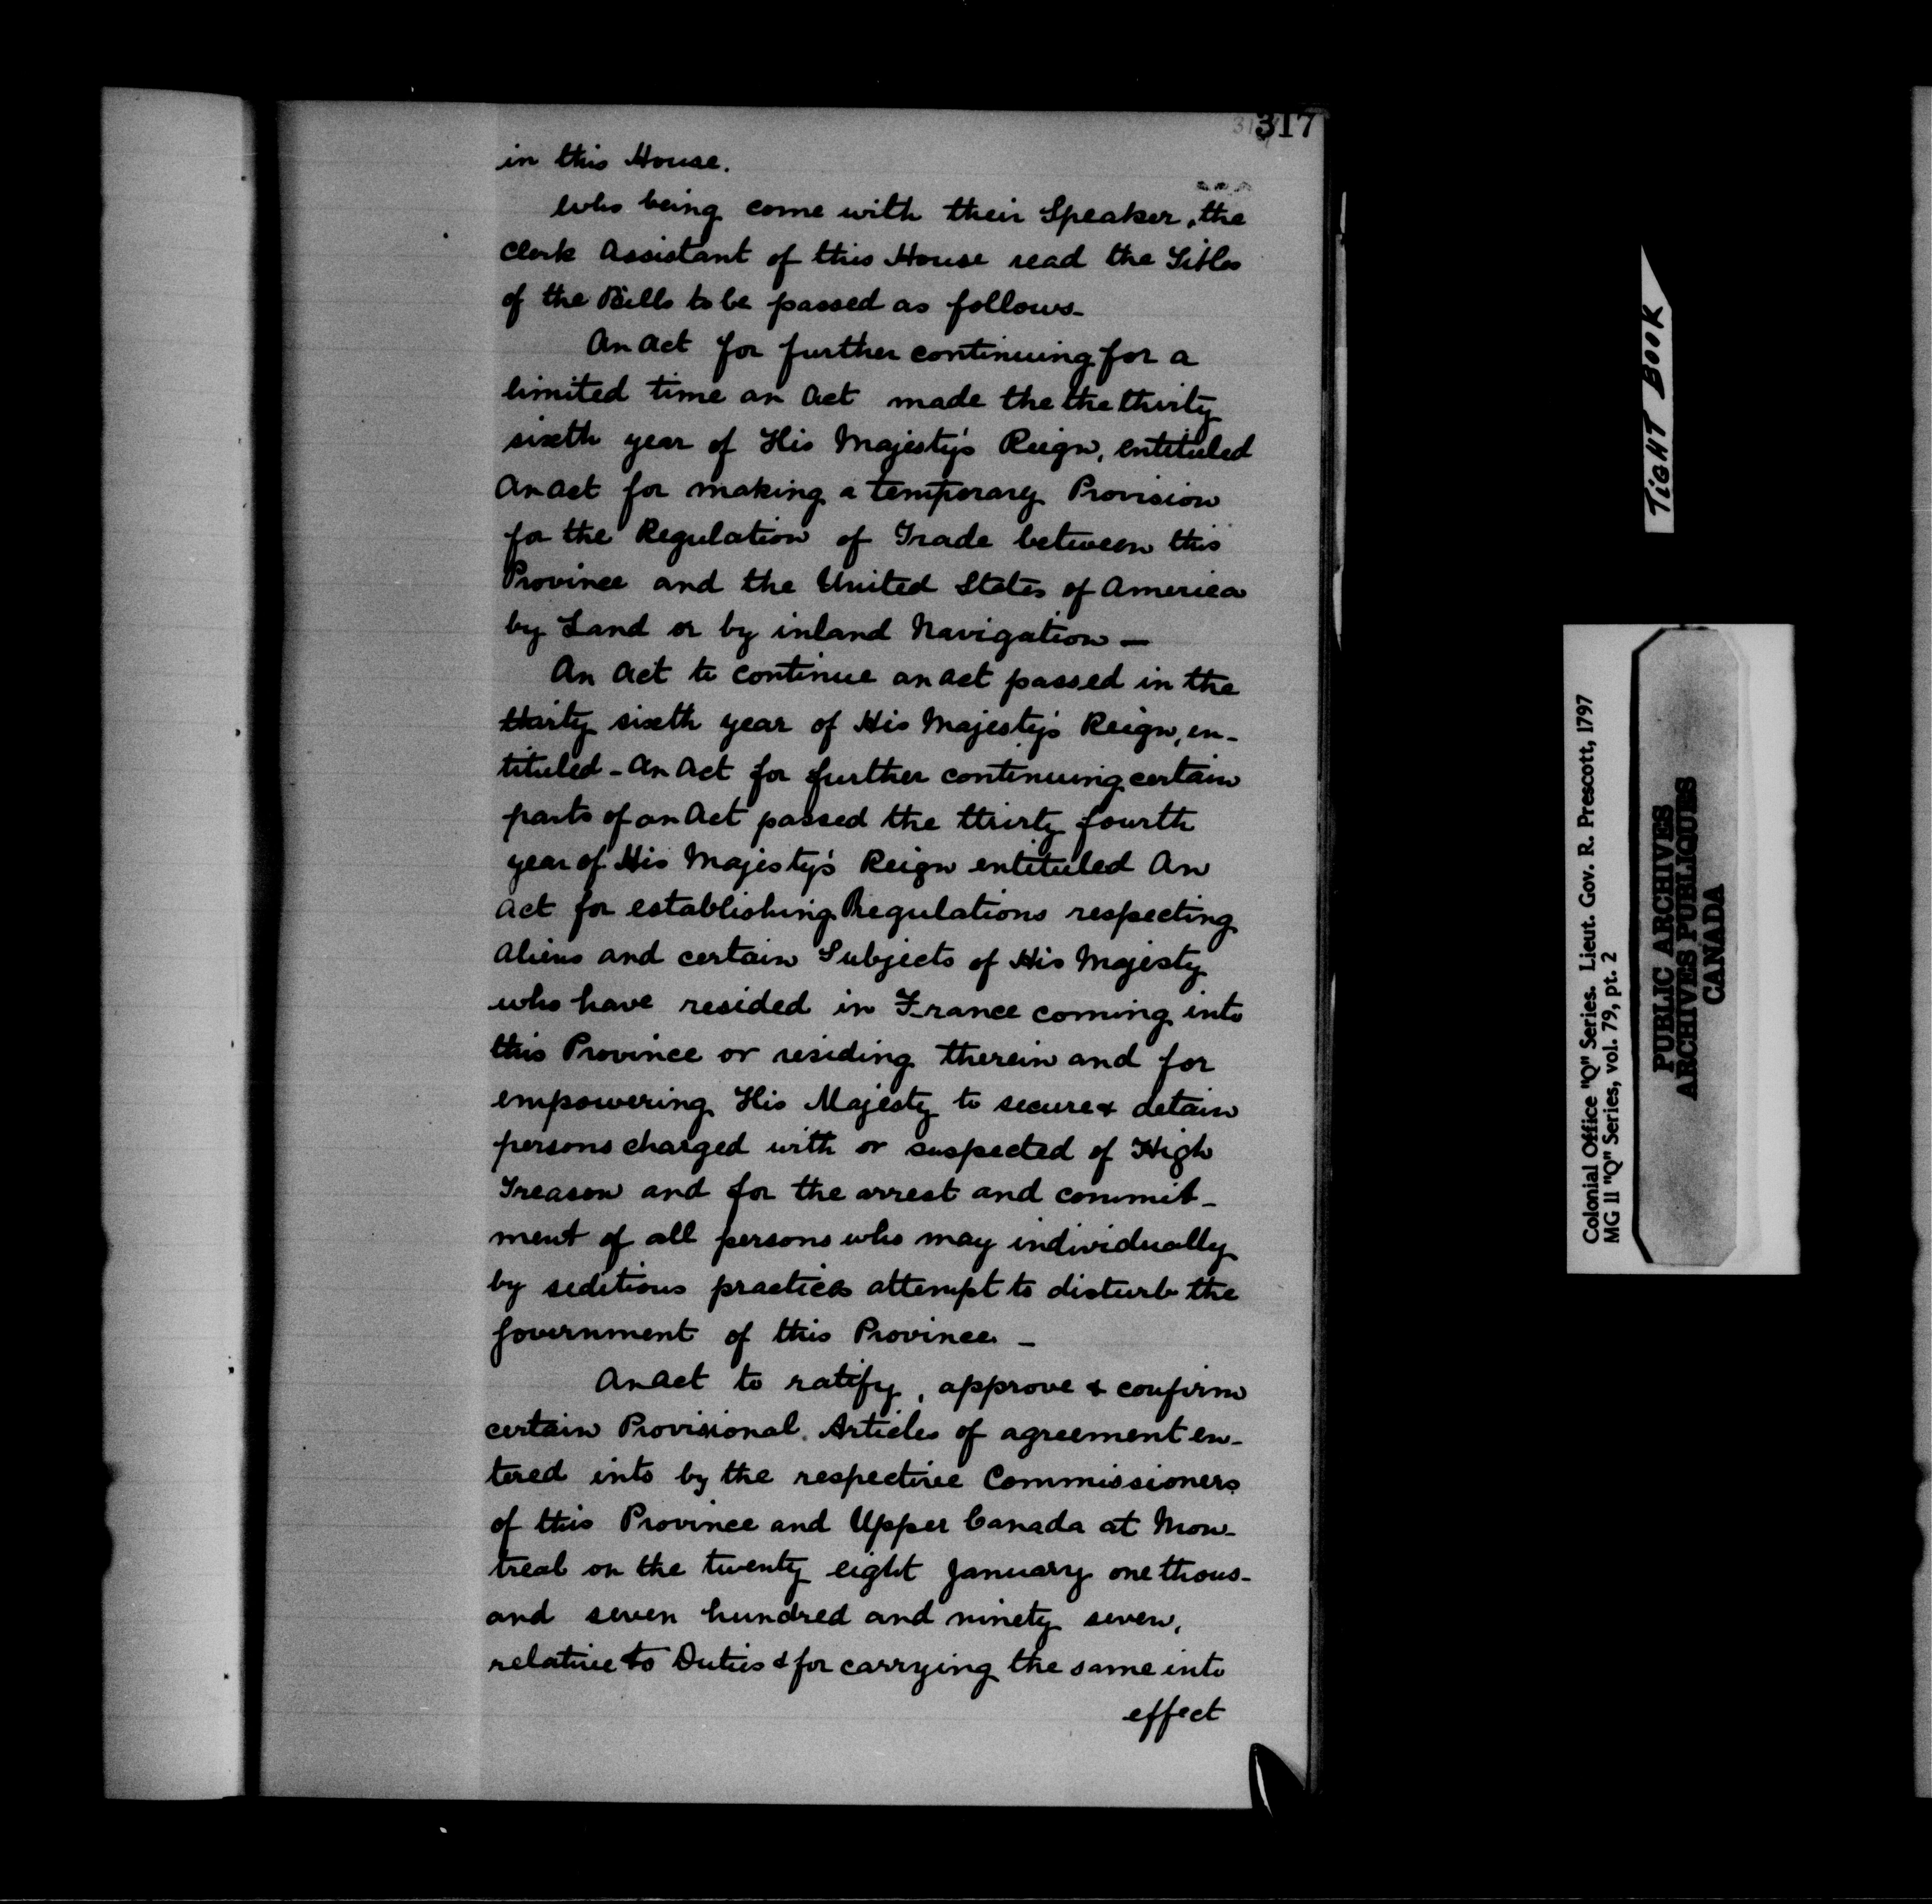 317
in this House.
Who being come with their Speaker, the
Clerk Assistant of this House read the Titles
of the Bills to be passed as follows-
An Act for further continuing for a
limited time an Act made the the thirty
sixth year of His Majesty's Reign, entituled
An Act for making a temporary Provision
for the Regulation of Trade between this
Province and the United States of America
by Land or by inland Navigation —
An Act to continue an Act passed in the
thirty sixth year of His Majesty's Reign, en-
tituled - An Act for further continuing certain
parts of an Act passed the thirty fourth
year of His Majesty's Reign entituled An
Act for establishing Regulations respecting
Aliens and certain Subjects of His Majesty
who have resided in France coming into
this Province or residing therein and for
empowering His Majesty to secure & detain
persons charged with or suspected of High
Treason and for the arrest and commit-
ment of all persons who may individually
by seditious practices attempt to disturb the
Government of this Province -
An Act to ratify, approve & confirm
certain Provisional Articles of agreement en-
tered into by the respective Commissioners
of this Province and Upper Canada at Mon-
treal on the twenty eight January one thous-
and seven hundred and ninety seven,
relative to Duties & for carrying the same into
effect
TIGHT BOOK
Colonial Office "Q" Series. Lieut. Gov. R. Prescott, 1797
MG 11 "Q" Series, vol. 79, pt. 2
PUBLIC ARCHIVES
ARCHIVES PUBLIQUES
CANADA